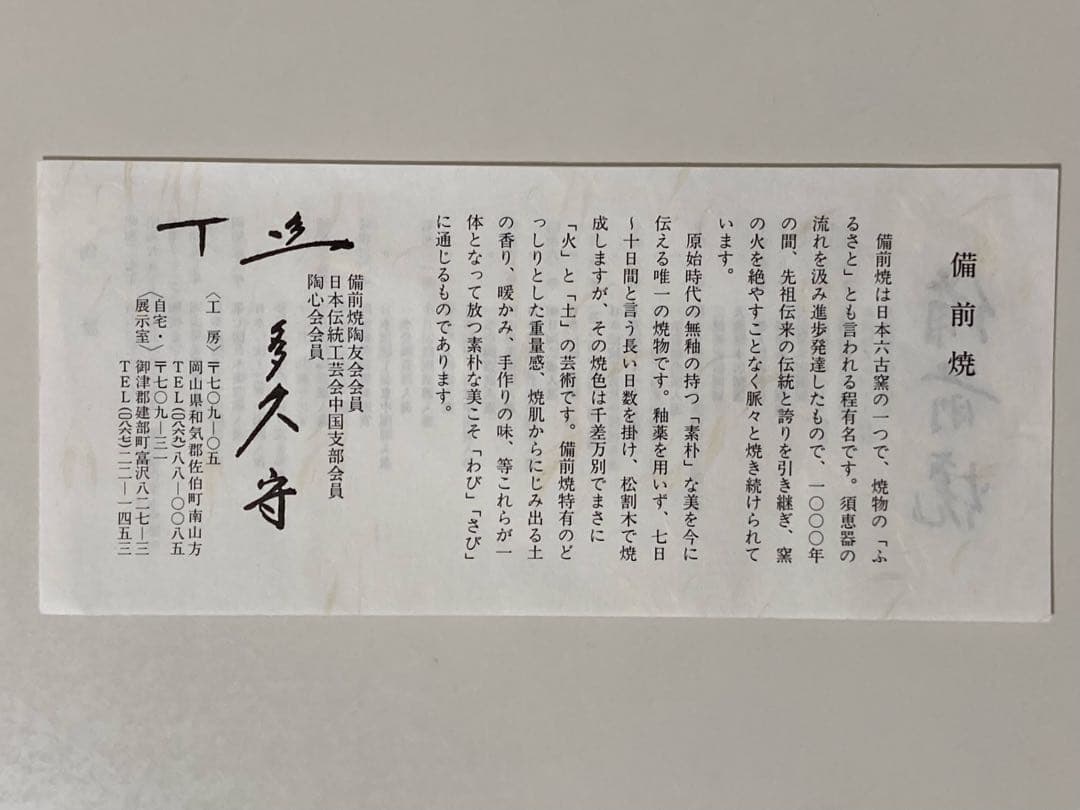 備前焼
備前焼は日本六古窯の一つで、焼物の「ふ
るさと」とも言われる程有名です。須恵器の
流れを汲み進歩発達したもので、一〇〇〇年
の間、先祖伝来の伝統と誇りを引き継ぎ、窯
の火を絶やすことなく脈々と焼き続けられて
います。
原始時代の無釉の持つ「素朴」な美を今に
伝える唯一の焼物です。釉薬を用いず、七日
〜十日間と言う長い日数を掛け、松割木で焼
成しますが、その焼色は千差万別でまさに
「火」と「土」の芸術です。備前焼特有のど
っしりとした重量感、焼肌からにじみ出る土
の香り、暖かみ、手作りの味、等これらが一
体となって放つ素朴な美こそ「わび」「さび」
に通じるものであります。
備前焼陶友会会員
日本伝統工芸会中国支部会員
陶心会会員
多久守
〈工 房〉〒七〇九―〇五
岡山県和気郡佐伯町南山方
TEL(〇八六九)八八―〇〇八五
〈自宅・展示室〉〒七〇九―三一
御津郡建部町富沢八二七―三
TEL(〇八六七)二二―一四五三